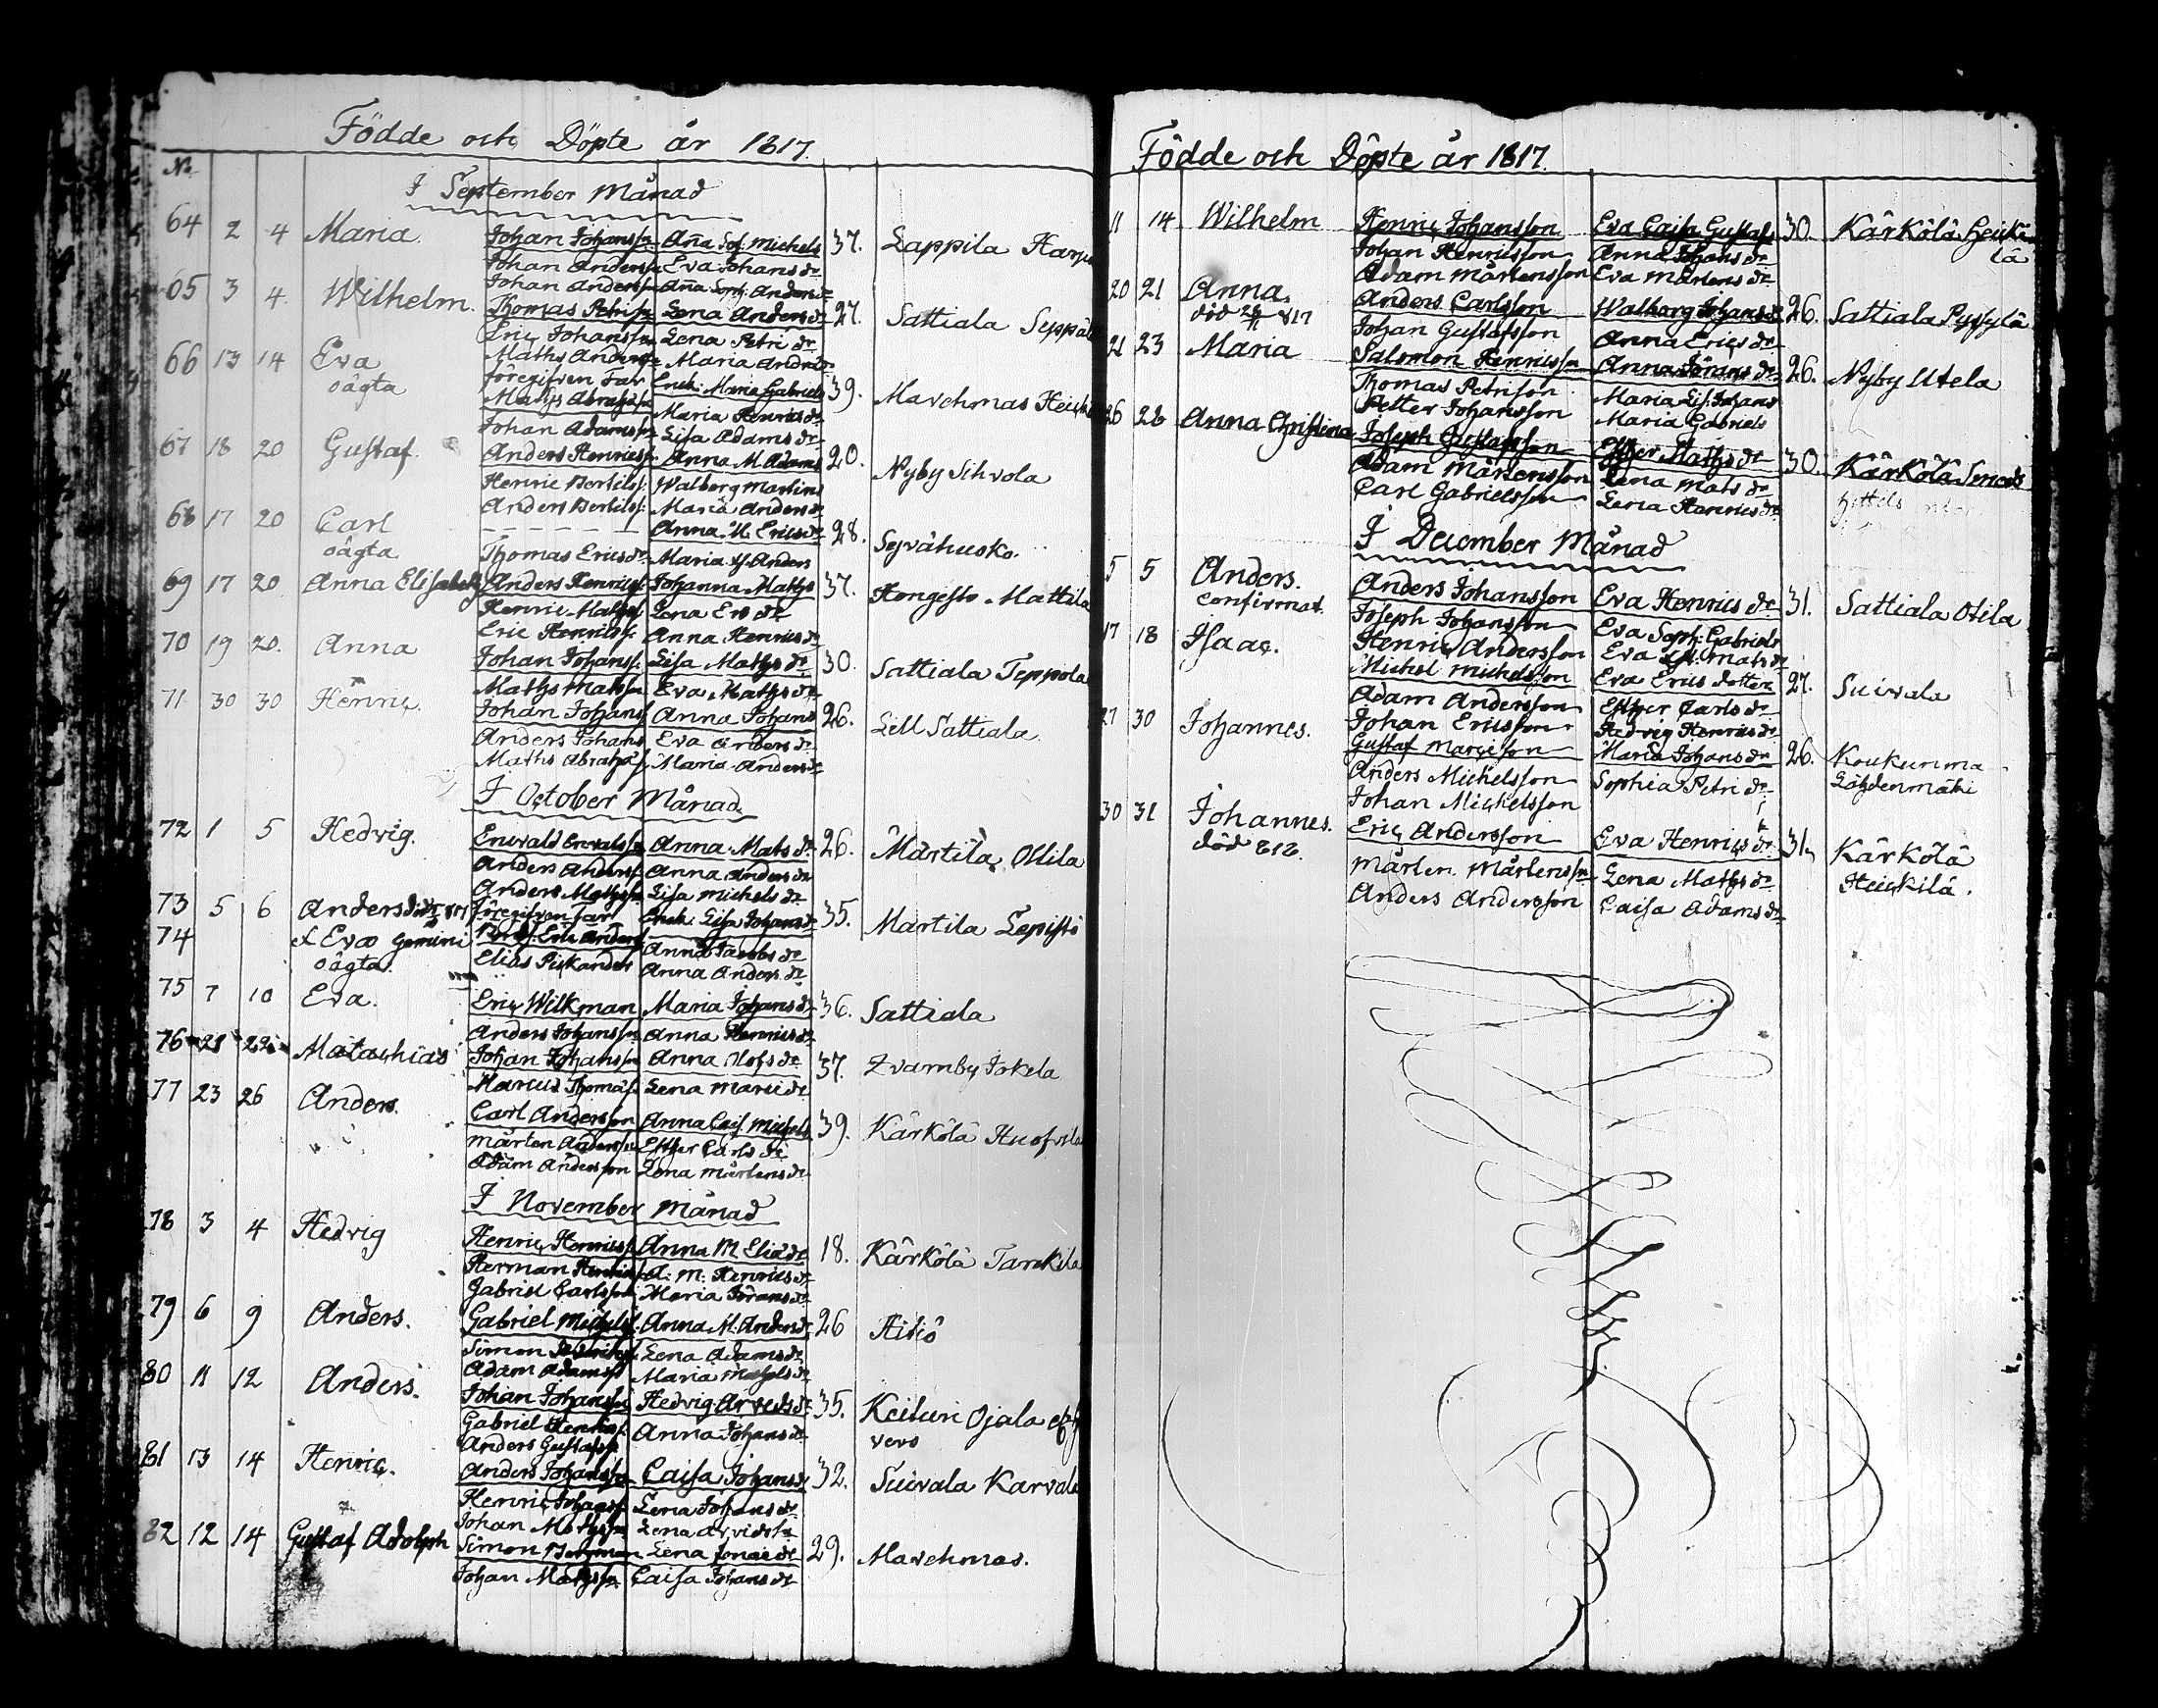 Födde och Döpte år 1817.
No
I September Månad
64 2 4 Maria. Johan Johanss: Aña Sof: Michels 37. Lappila
Johan Anderss: Eva Johans dr
Johan Anderss: Aña Soph: Anders dr
65 3 4. Wilhelm. Thomas Petriss: Lena Anders dr 27. Sattiala
Eric Johanss: Lena Petri dr
Maths Anderss: Maria Andrae dr
66 13 14 Eva föregifven Far Enck: Maria Gabriels 39. Marchmas
oägta Maths Abrahass: Maria Henrics dr
Johan Adamss: Lisa Adams dr
67 18 20 Gustaf. Anders Henricss: Anna M. Adams 20. Nyby Sihvola
Henric Bertilss: Walborg Martins
Anders Bertilss: Maria Anders dr
68 17 20 Carl Anna M. Erics dr 28. Seyvähusko.
oägta Thomas Erics Maria Anders
69 17 20. Anna Elisabeth Anders Henricss: Johanna Maths 37. Hongesto Mattila
Henric Mathss: Lena Ers dr
Eric Henricss: Anna Henrics dr
70 19 20. Anna Johan Johanss: Lisa Maths dr 30. Sattiala Teppola
Maths Matss: Eva Maths dr
71 30 30 Henric. Johan Johanss: Anna Johans 26. Lill Sattiala
Anders Johans Eva Anders dr
Maths Abrahass: Maria Anders dr
I October Månad
72 1 5 Hedvig. Enwald Enwaldss: Anna Mats dr 26. Martila Ollila
Anders Anderss: Anna Anders dr
Anders Mathss: Lisa Michels dr
73 5 6 Anders föregifven Far Enck: Lisa Johans dr 35. Martila Lepistö
74 & Eva gemini Eric Anderss: Anna Jacobs dr
oägta. Elias Piskander Anna Anders dr
75 7 10 Eva. Eric Wilkman Maria Johans dr 36. Sattiala
Anders Johanss: Anna Henrics dr
76 21 22 Matachias Johan Johansson Anna Olofs dr 37. Zvarnby Jokela
Marcus Thomass: Lena Marci dr
77 23 26 Anders. Carl Andersson Anna Cajs. Michels 39. Kärkölä Huofvila
Mårten Anderss: Esther Carls dr
Adam Andersson Lena Mårtens dr
I November Månad
78 3 4 Hedvig Henric Henricss: Anna M. Eliæ dr 18. Kärkölä Tanckila
Herman A. M. Henrics dr
Gabriel Carlsson Maria Jörans dr
79 6 9 Anders. Gabriel Michelss: Anna M. Anders dr 26
Simon Lena Adams dr
Adam Adamss: Maria Michels dr
80 11 12 Anders. Johan Johanss: Hedvig Arvids dr 35. Keituri Ojala
Gabriel Anna Johans dr vers
Anders Gustafss:
81 13 14 Henric. Anders Johanss: Caisa Johans dr 32. Suivala Karvala
Henric Johanss: Lena Johans dr
Johan Mathss: Lena Arvids dr
82 12 14 Gustaf Adolph Simon Bergman Lena Jonae dr 29. Marchmas.
Johan Mathss: Caisa Johans dr
Födde och Döpte år 1817.
11 14 Wilhelm Henric Johansson Eva Caisa Gustafs 30. Kärkölä Heicki
Johan Henricsson Anna Johans dr lä
Adam Mårtensson Eva Mårtens dr
20 21 Anna. Anders Carlsson Walborg Johans dr 26. Sattiala
död 817 Johan Gustafsson Anna Erics dr
21 23 Maria Salomon Henricsson Anna Jörans dr 26. Nyby Utela
Thomas Petrison Maria Lis: Johans
Petter Johansson Maria Gabriels
26 26 Anna Christina Joseph Gustafsson Esther Maths dr 30. Kärkölä
Adam Mårtensson Lena Mats dr
Carl Gabrielsson Lena Henrics dr
I December Månad
5 5 Anders. Anders Johansson Eva Henrics dr 31. Sattiala Otila
confirmat. Joseph Johansson Eva Soph: Gabriels
Henric Andersson Eva Mats dr
17 18 Isaac. Michel Michelsson Eva Erics dotter 27. Suivala
Adam Andersson Esther Carls dr
Johan Ericsson Hedvig Henrics dr
27 30 Johannes. Gustaf Marcisson Maria Johans dr 26. Koukunma
Anders Michelsson Sophia Petri dr Lähdenmäki
Johan Michelsson
30 31 Johannes. Eric Andersson Eva Henrics dr 31. Kärkölä
död 818. Mårten Mårtenss: Lena Maths dr Heickilä.
Anders Andersson Caisa Adams dr